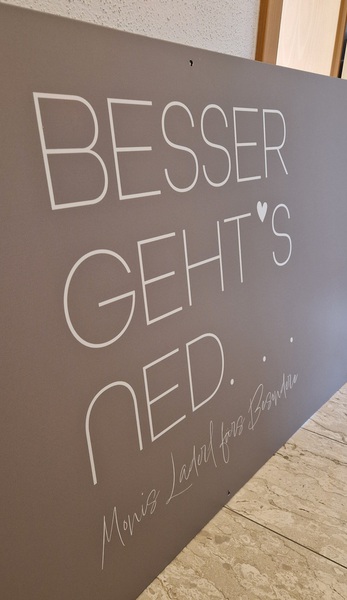 BESSER
GEHT'S
NED...
Monis Laderl fürs Besondere